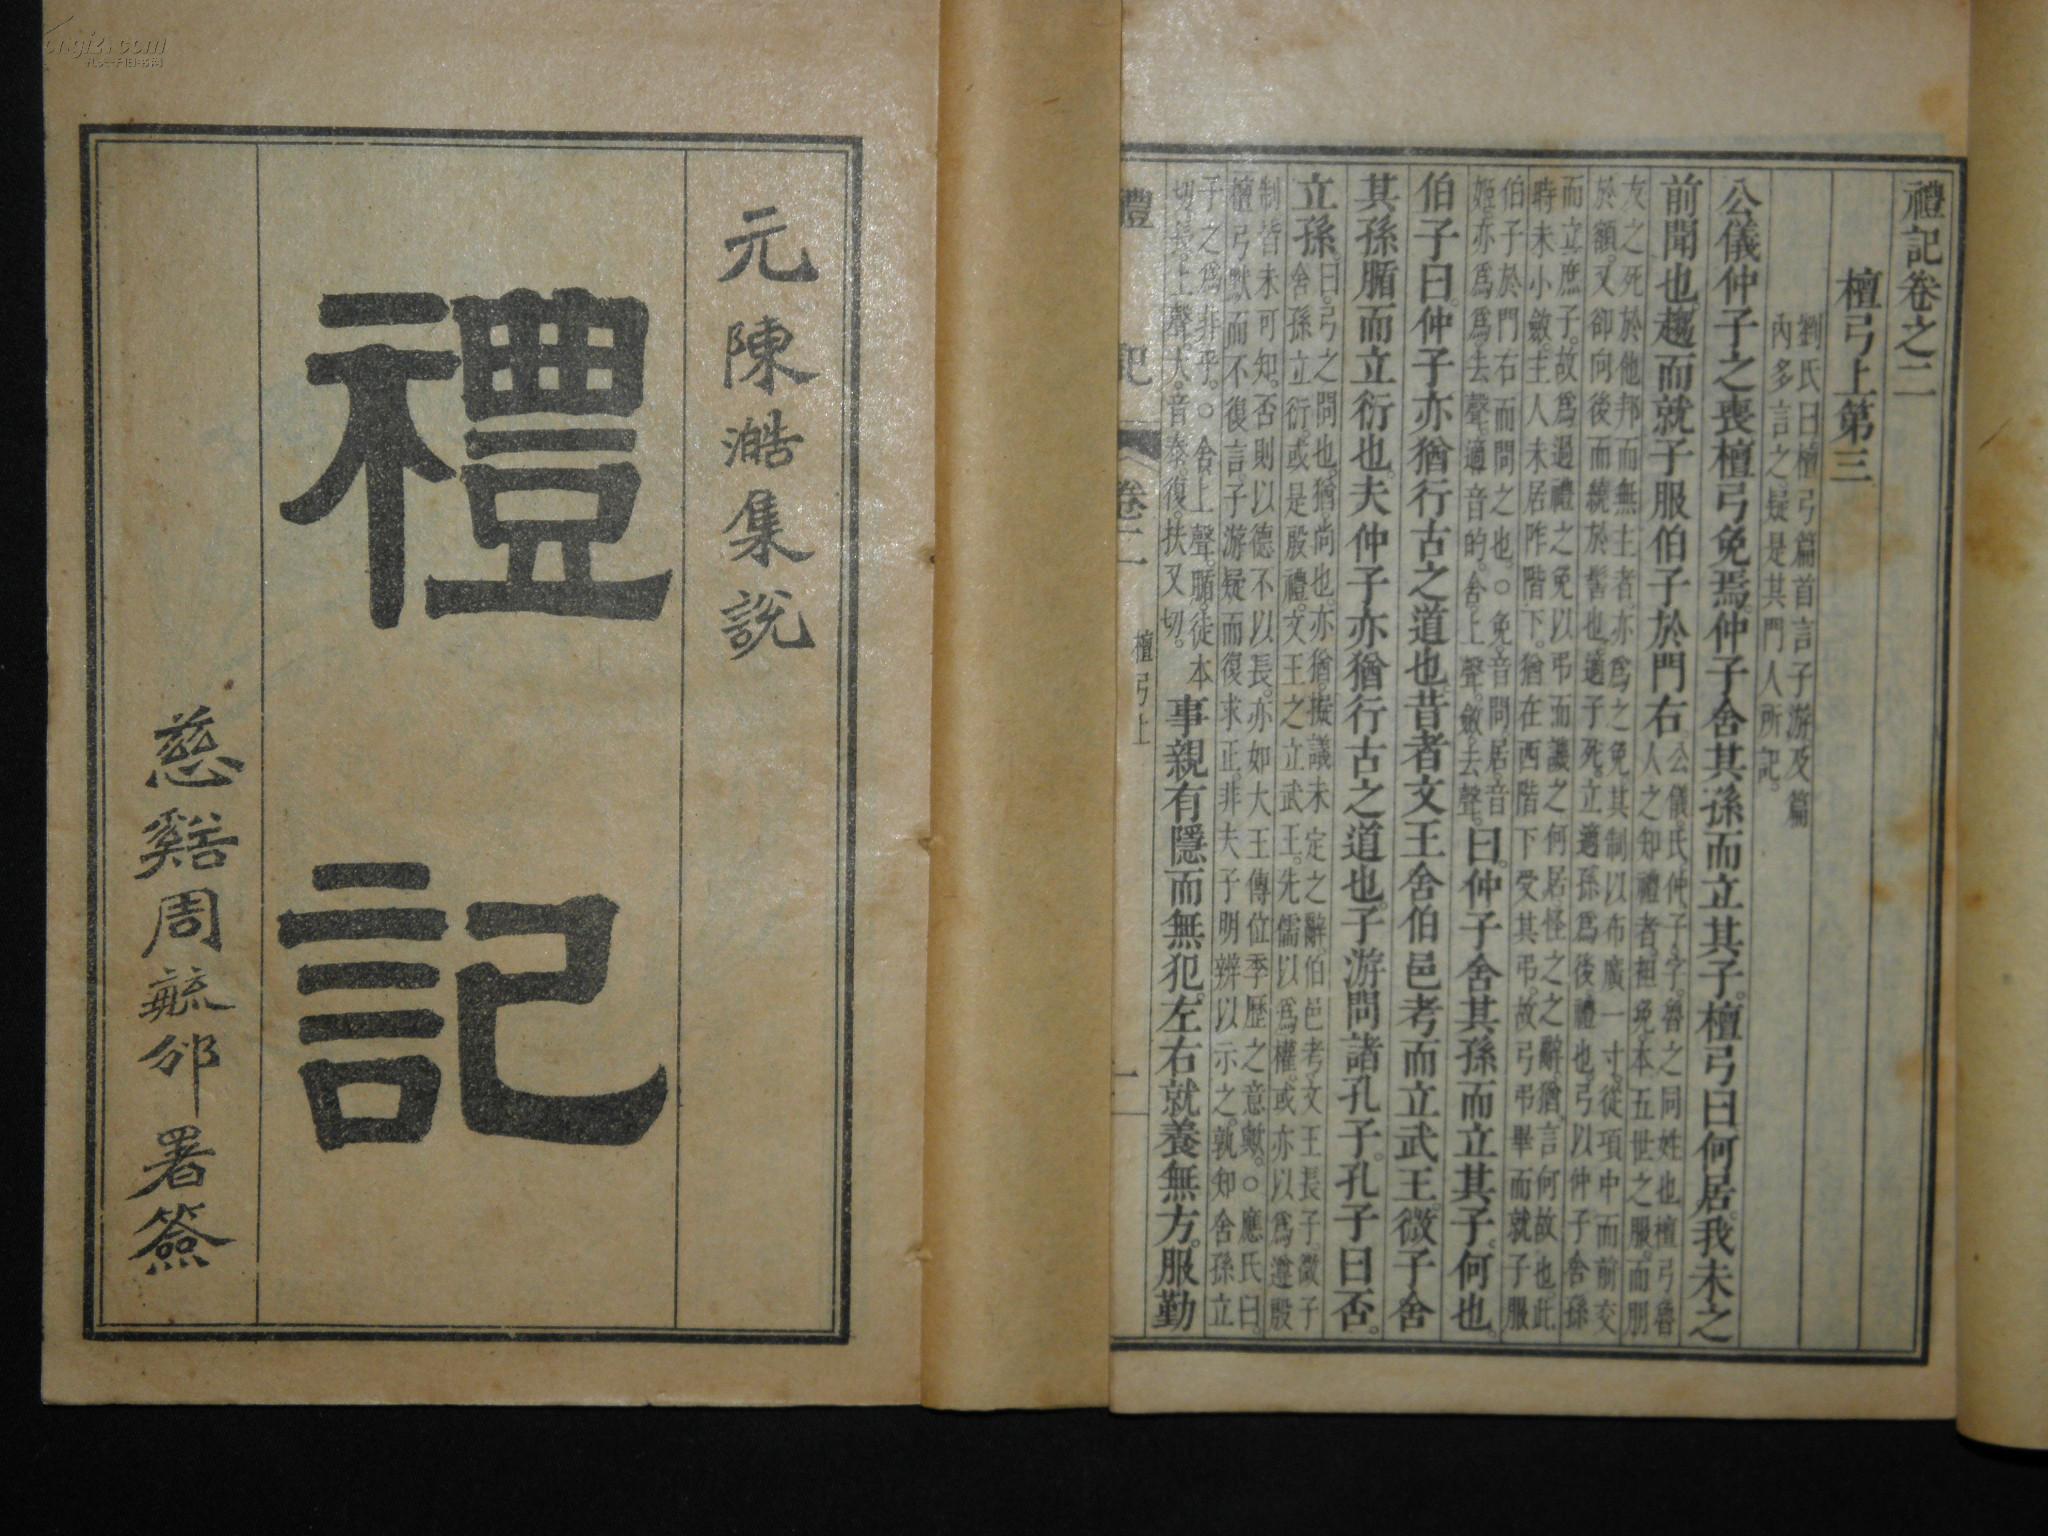 元陳澔集說
禮記
慈谿周毓邠署簽
禮記卷之二
檀弓上第三
劉氏曰檀弓篇首言子游及篇
內多言之疑是其門人所記。
公儀仲子之喪檀弓免焉。仲子舍其孫而立其子。檀弓曰何居。我未之
前聞也。趨而就子服伯子於門右。
公儀氏仲子字。魯之同姓也。檀弓魯
人之知禮者。袒免本五世之服。而朋
友之死於他邦而無主者。亦爲之免其制以布廣一寸。從項中而前交
於額。又卻向後而繞於髻也。適子死。立適孫爲後禮也。弓以仲子舍孫
而立庶子。故爲過禮之免以弔而譏之何居怪之之辭。猶言何故也。此
時未小斂。主人未居阼階下。猶在西階下受其弔。故弓弔畢而就子服
伯子於門右而問之也。○免音問。居音
姬。亦爲爲去聲。適音的。舍上聲。斂去聲。
曰。仲子舍其孫而立其子。何也。
伯子曰。仲子亦猶行古之道也。昔者文王舍伯邑考而立武王。微子舍
其孫腯而立衍也。夫仲子亦猶行古之道也。子游問諸孔子。孔子曰否。
立孫。
曰。弓之問也。猶尚也。亦猶。擬議未定之辭。伯邑考文王長子。微子
舍孫立衍。或是殷禮。文王之立武王。先儒以爲權。或亦以爲遵殷
制皆未可知。否則以德不以長。亦如大王傳位季歷之意歟。○應氏曰。
檀弓默而不復言。子游疑而復求正。非夫子明辨以示之。孰知舍孫立
子之爲非乎。○舍上聲。腯徒本
切。長上聲。大音泰。復扶又切。
事親有隱而無犯。左右就養無方。服勤
禮記 卷二 檀弓上